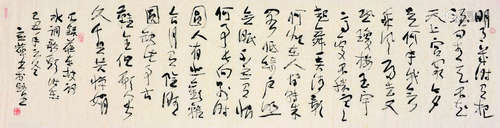 明月幾時有把
酒問青天不知
天上宮闕今夕
是何年我欲
乘風歸去又
恐瓊樓玉宇
高處不勝寒
起舞弄清影
何似在人間轉朱
閣低綺戶照
無眠不應有恨
何事長向別時
圓人有悲歡離
合月有陰晴
圓缺此事古
難全但願人長
久千里共嬋娟
水調歌頭